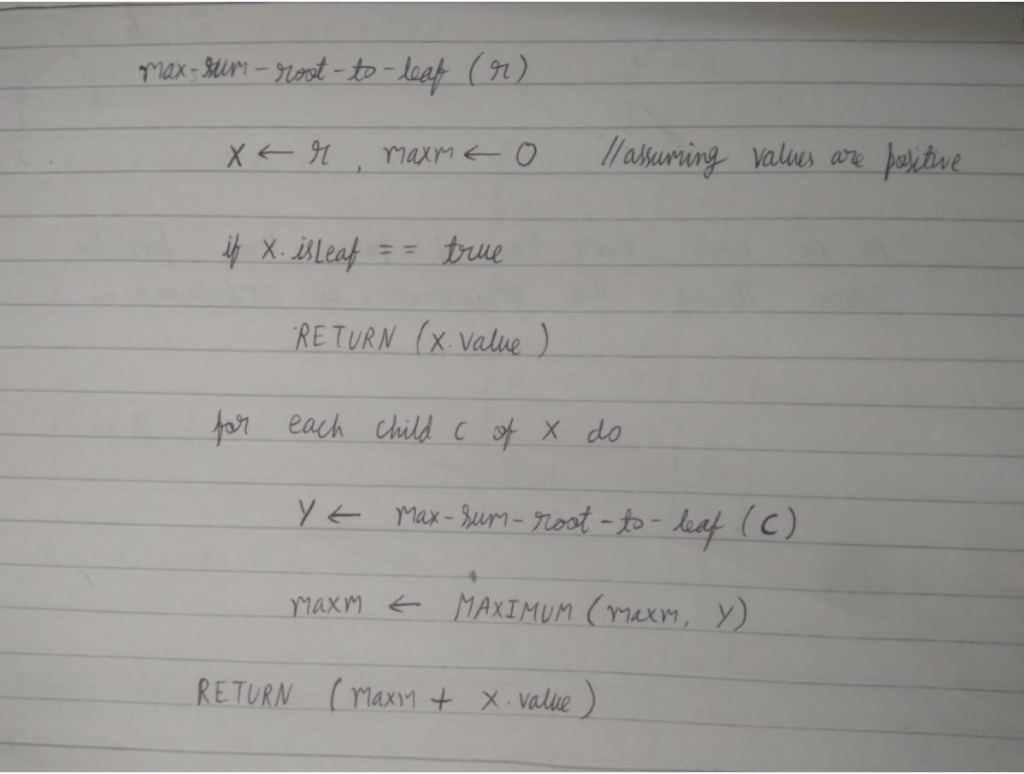 max-sum-root-to-leaf (r)
X ← r , maxm ← 0 //assuming values are positive
if X.isLeaf == true
RETURN (X.value)
for each child c of X do
Y ← max-sum-root-to-leaf (C)
maxm ← MAXIMUM (maxm, Y)
RETURN (maxm + X.value)